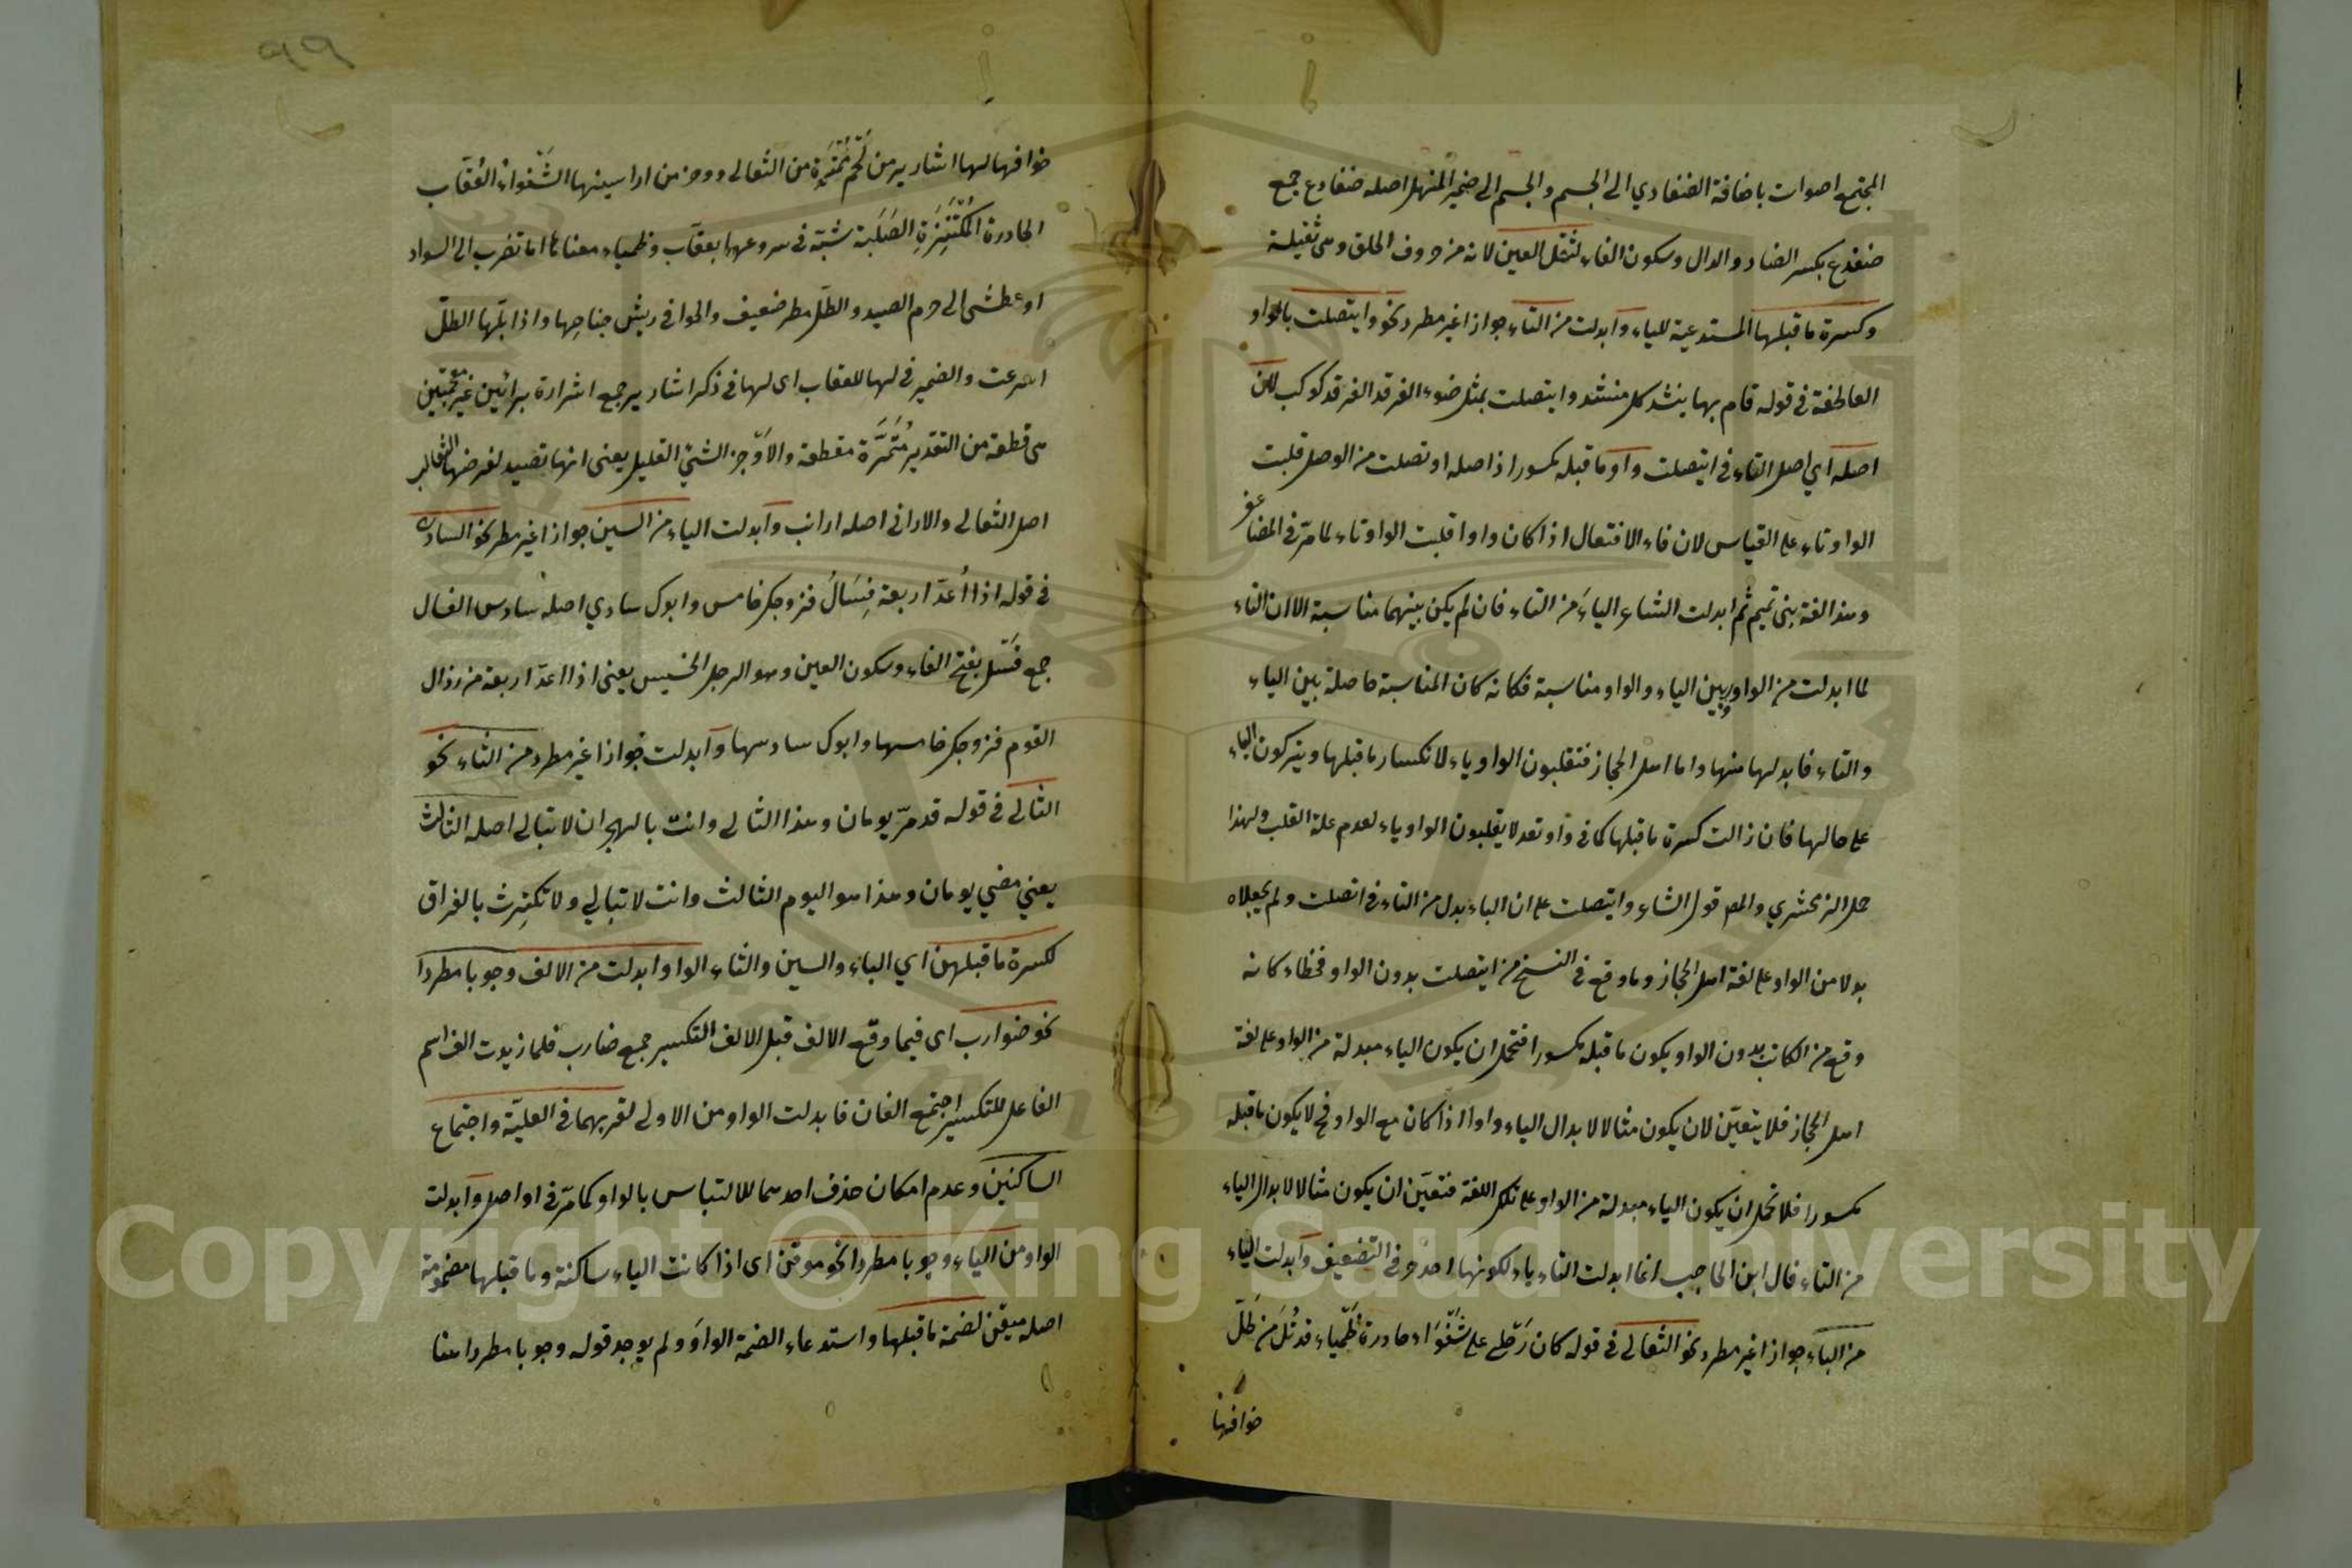 المجتمع اصوات باضافة الضفادي الى الجسم والجسم الى ضمير المنهل اصله ضفادع جمع
ضفدع بكسر الضاد والدال وسكون الفاء لثقل العين لانه من حروف الحلق وهى ثقيلة
وكسرة ما قبلها المستدعية للياء وابدلت من التاء جوازا غير مطرد نحو وايتصلت بالواو
العاطفة في قوله قام بها ينشد كل منشد وايتصلت بمثل ضوء الفرقد الفرقد كوكب لان
اصله اي اصل التاء في ايتصلت واو ما قبله مكسور اذ اصله اوتصلت من الوصل قلبت
الواو تاء على القياس لان فاء الافتعال اذا كان واوا قلبت الواو تاء لما مرّ في المضاعف
وهذا لغة بنى تميم ثم ابدلت الشاعر الياءَ من التاء فان لم يكن بينهما مناسبة الا ان التاء
لما ابدلت من الواو وبين الياء والواو مناسبة فكانه كان المناسبة حاصلة بين الياء
والتاء فابدلها منها واما اهل الحجاز فتقلبون الواو ياء لانكسار ما قبلها ويتركون الياء
على حالها فان زالت كسرة ما قبلها كما في واوتعد لا يقلبون الواو ياء لعدم علة القلب ولهذا
حمل الزمخشري والمص قول الشاعر وايتصلت على ان الياء بدل من التاء في اتصلت ولم يجعلاه
بدلا من الواو على لغة اهل الحجاز وما وقع في النسخ من ايتصلت بدون الواو فخطاء كانه
وقع من الكاتب بدون الواو يكون ما قبله مكسورا فتحمل ان يكون الياء مبدلة من الواو على لغة
اهل الحجاز فلا يتعيّن لان يكون مثالا لابدال الياء واوا اذا كان مع الواو فح لا يكون ما قبله
مكسورا فلا تحمل ان يكون الياء مبدلة من الواو على تلك اللغة فتعيّن ان يكون مثالا لابدال الياء
من التاء قال ابن الحاجب انما ابدلت التاء ياء لكونها احد حرفي التضعيف وابدلت الياء
من الباء جوازا غير مطرد نحو الثعالى في قوله كان رَحْلي على شَغْوَاء حادرة ظَمْيَاء قد بُلَّ من طَلّ
خوافيها
٩٩
خوافيها لها اشارير من لَحْم مُتَمَّرَةٍ من الثعالى ووخز من ارانيها الشَّغْواءُ العُقاب
الحادرة المُكْتَنِزَةِ الصَلَبة شبّه في سرعهها بعقاب وظمياء معناها اما تضرب الى السواد
او عطشى الى دم الصيد والطلّ مطر ضعيف والخوافي ريش جناحها واذا بلّها الطلّ
اسرعت والضمير في لها للعقاب اى لها في ذكر اشارير جمع اشرارة برائين غير معجمتين
هى قطعة من القديد مُتَمَّرَة مقطعة والاوخز الشئ القليل يعنى انها تصيد لفرخها الثعالب
اصل الثعالى والاراني اصله ارانب وابدلت الياء من السين جوازا غير مطرد نحو السادى
في قوله اذا اُعدّ اربعة فِسَالٌ فزوجك خامس وابوك سادي اصله سادس الفسال
جمع فَسْل بفتح الفاء وسكون العين وهو الرجل الخسيس يعنى اذا اعدّ اربعة من رذال
القوم فزوجك خامسها وابوك سادسها وابدلت جوازا غير مطرد من الثاء نحو
الثالى في قوله قد مرّ يومان وهذا الثالى وانت بالهجران لا تبالى اصله الثالث
يعني مضي يومان وهذا هو اليوم الثالث وانت لا تبالي ولا تكترِث بالفراق
لكسرة ما قبلهن اي الباء والسين والثاء الواو ابدلت من الالف وجوبا مطردا
نحو ضوارب اى فيما وقّع الالف قبل الالف التكسير جمع ضارب فلما زيدت الف اسم
الفاعل للتكسير اجتمع الفان فابدلت الواو من الاولى لقربهما في العليّة واجتماع
الساكنين وعدم امكان حذف احدهما للالتباس بالواو كما مرّ في اواصل وابدلت
الواو من الياء وجوبا مطردا نحو موقن اى اذا كانت الياء ساكنة وما قبلها مضمومة
اصله ميقن لضمة ما قبلها واستدعاء الضمة الواوَ ولم يوجد قوله وجوبا مطردا هنا
Copyright © King Saud University